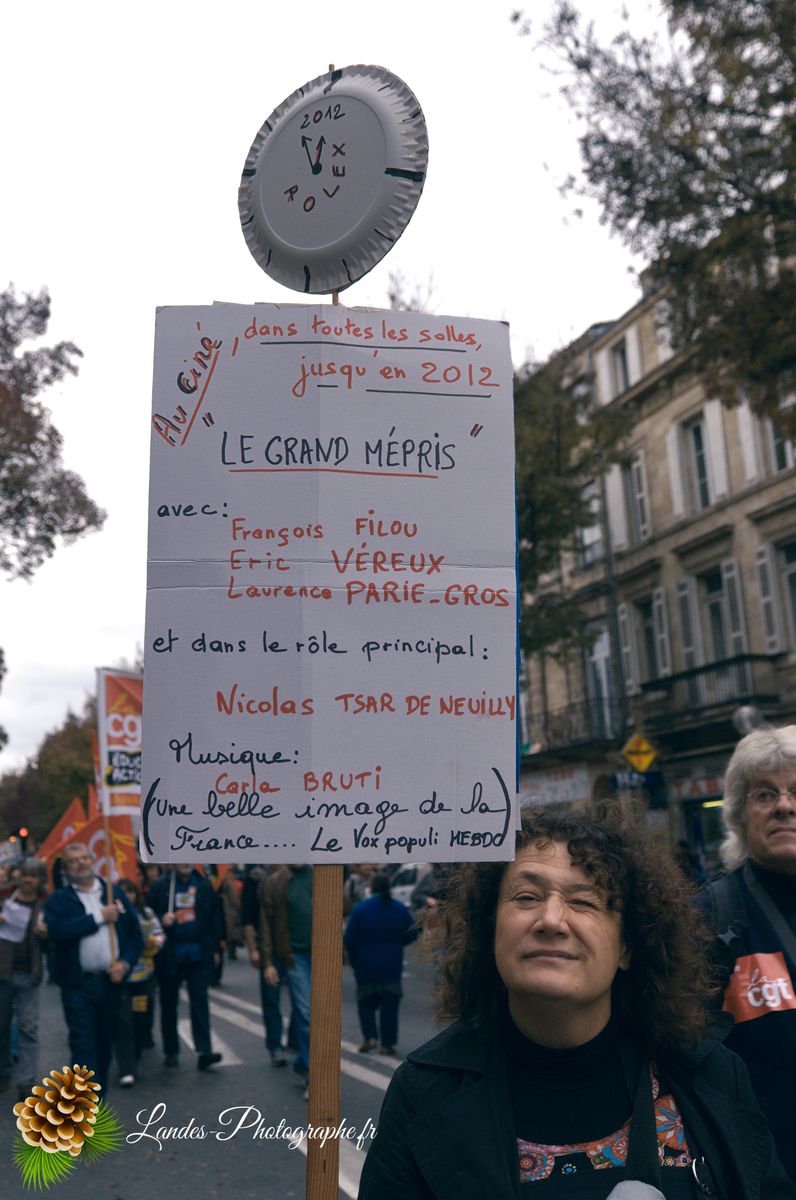 2012
ROLEX
Au ciné, dans toutes les salles,
jusqu'en 2012
"LE GRAND MÉPRIS"
avec:
François FILOU
Eric VÉREUX
Laurence PARIE-GROS
et dans le rôle principal:
Nicolas TSAR DE NEUILLY
Musique:
Carla BRUTI
(une belle image de la
France.... Le Vox populi HEBDO)
La
cgt
la
cgt
Landes-Photographe.fr